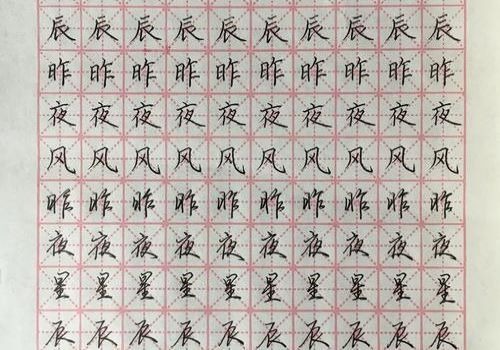 辰辰辰辰辰辰辰辰辰辰
昨昨昨昨昨昨昨昨昨昨
夜夜夜夜夜夜夜夜夜夜
风风风风风风风风风风
昨昨昨昨昨昨昨昨昨昨
夜夜夜夜夜夜夜夜夜夜
星星星星星星星星星星
辰辰辰辰辰辰辰辰辰辰